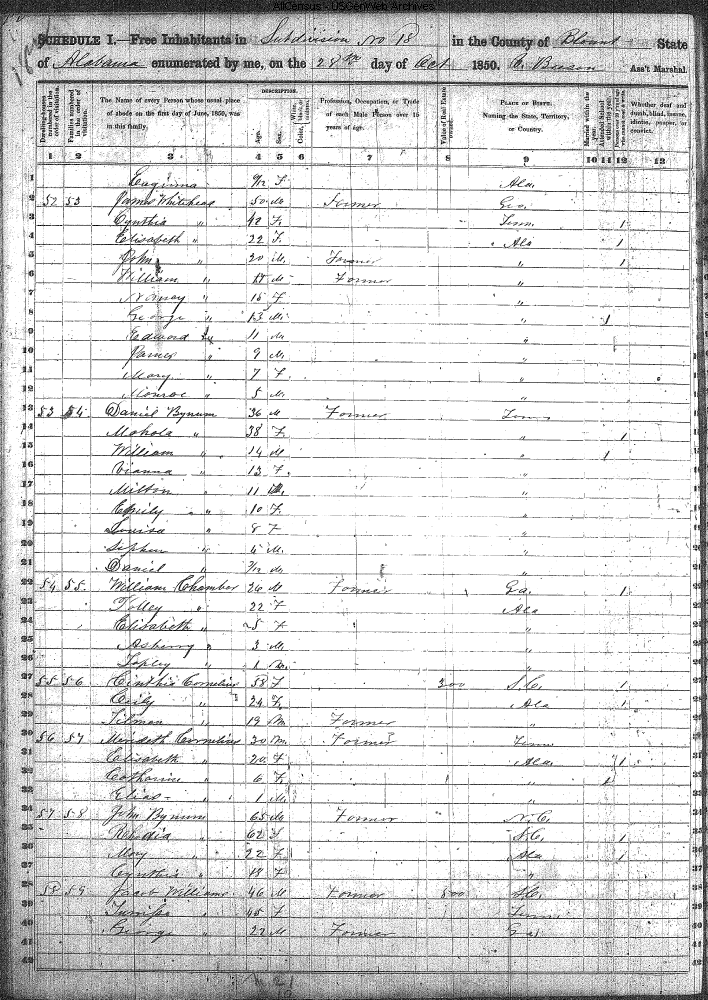 AllCensus - USGenWeb Archives
SCHEDULE I.—Free Inhabitants in Subdivision No 18 in the County of Blount State
of Alabama enumerated by me, on the 28th day of Oct 1850. Ass't Marshal.
DESCRIPTION.
The Name of every Person whose usual place of abode on the first day of June, 1850, was in this family.
Age.
Sex.
Profession, Occupation, or Trade of each Male Person over 15 years of age.
Value of Real Estate owned.
PLACE OF BIRTH. Naming the State, Territory, or Country.
Married within the year.
Whether deaf and dumb, blind, insane, idiotic, pauper, or convict.
1 2 3 4 5 6 7 8 9 10 11 12 13
1 F Ala.
2 52 53 James Whitehead 50 M Farmer Geo.
3 Cynthia " 42 F Tenn. 1
4 Elisabeth " 22 F Ala 1
5 John " 20 M Farmer " 1
6 William " M Farmer "
7 " 15 F "
8 George " 13 M " 1
9 Edward " 11 M "
10 James " 9 M "
11 Mary " 7 F "
12 Monroe " 5 M "
13 53 54 Daniel Bynum 36 M Farmer Tenn
14 Mahala " 38 F " 1
15 William " 14 M " 1
16 Vianna " 13 F "
17 Milton " 11 M "
18 Emily " 10 F "
19 Louisa " 8 F "
20 " M "
21 Daniel " M "
22 54 55 William Chamber 26 M Farmer Ga. 1
23 Polley " 22 F Ala
24 Elisabeth " 5 F "
25 Asberry " 3 M "
26 Tapley " 1 M "
27 55 56 Cinthia Cornelius 58 F 300 S.C. 1
28 " 24 F Ala 1
29 Tilman " 19 M Farmer "
30 56 57 Merideth Cornelius 30 M Farmer Tenn
31 Elisabeth " 20 F Ala 1
32 Catharine " 6 F " 1
33 Elias " 1 M "
34 57 58 John Bynum 65 M Farmer N.C.
35 62 F S.C. 1
36 Mary " 22 F Ala 1
37 Cynthia " F "
38 58 59 Jacob Williams 46 M Farmer 500 S.C.
39 " 45 F Tenn
40 George " 22 M Farmer Ga
41
42